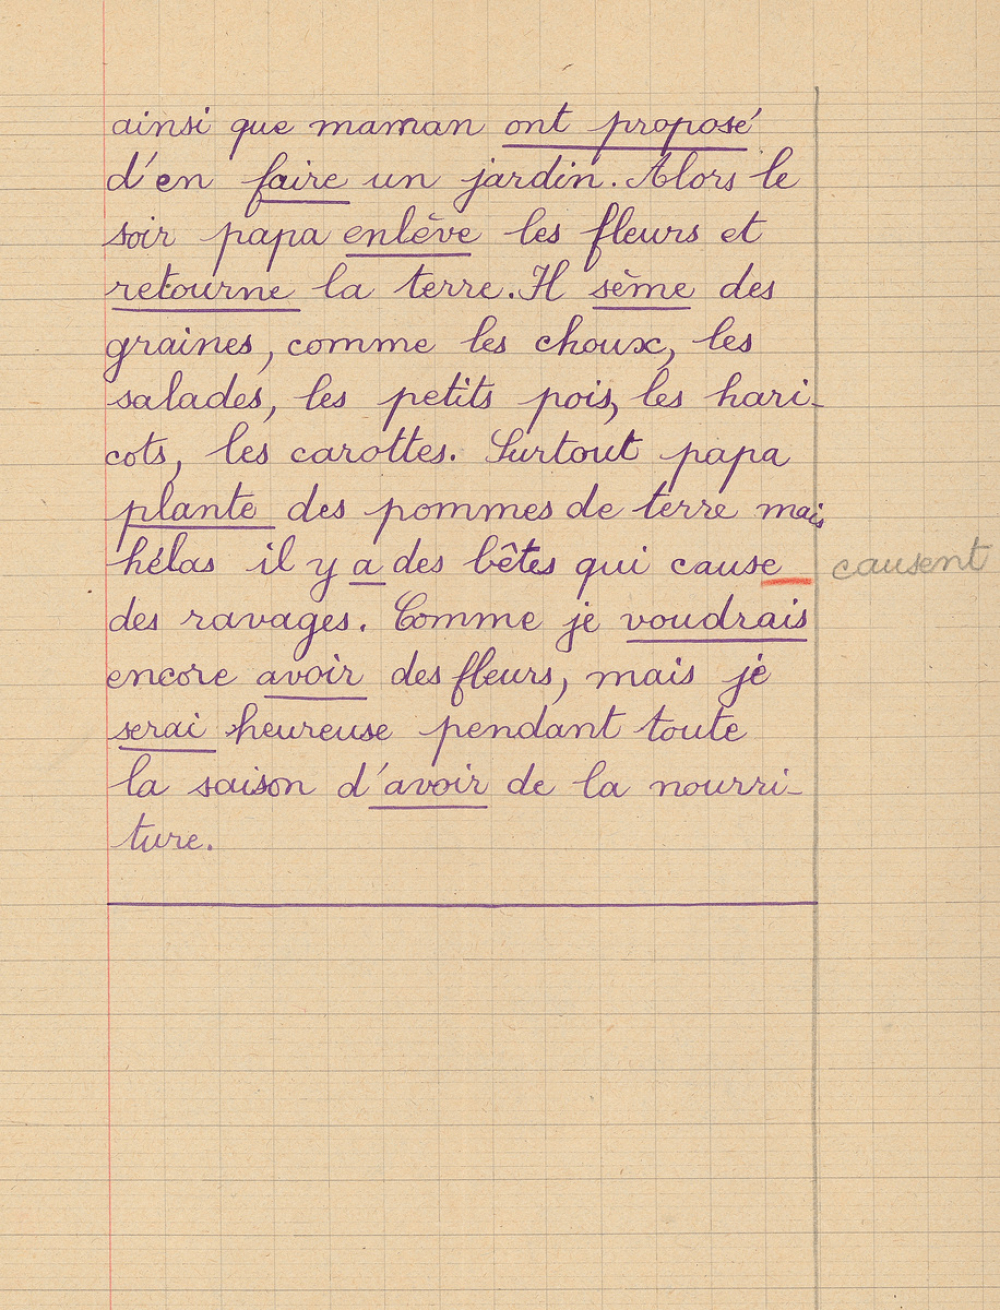 ainsi que maman ont proposé
d'en faire un jardin. Alors le
soir papa enlève les fleurs et
retourne la terre. Il sème des
graines, comme les choux, les
salades, les petits pois, les hari-
cots, les carottes. Surtout papa
plante des pommes de terre mais
hélas il y a des bêtes qui cause causent
des ravages. Comme je voudrais
encore avoir des fleurs, mais je
serai heureuse pendant toute
la saison d'avoir de la nourri-
ture.